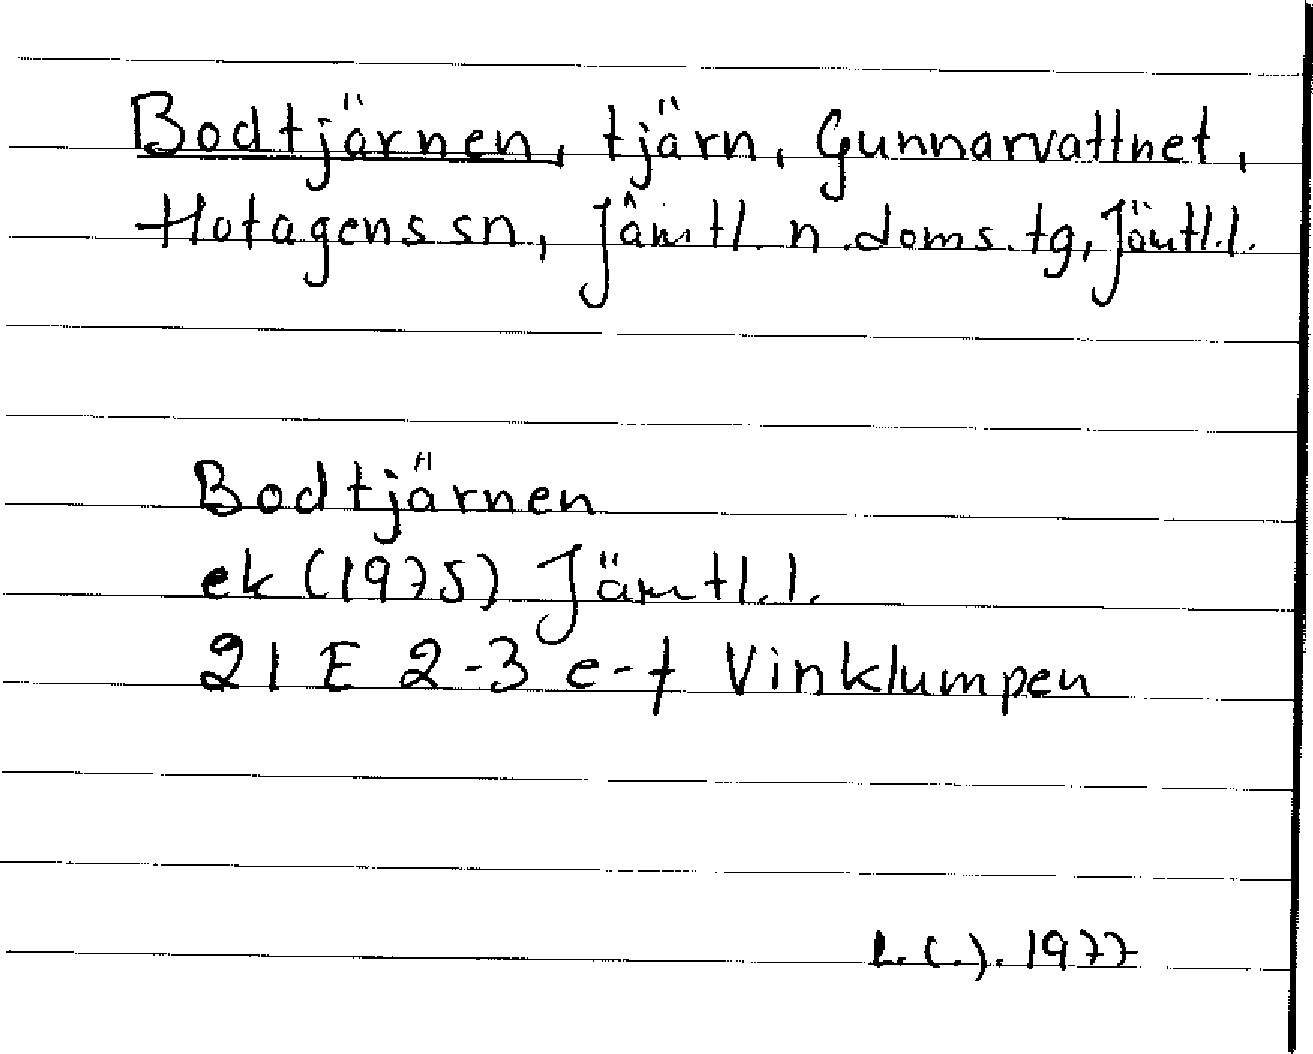 Bodtjärnen, tjärn, Gunnarvattnet,
Hotagens sn, Jämtl. n. doms. tg, Jämtl. l.
Bodtjärnen
ek (1975) Jämtl. l.
21 E 2-3 e-f Vinklumpen
1977